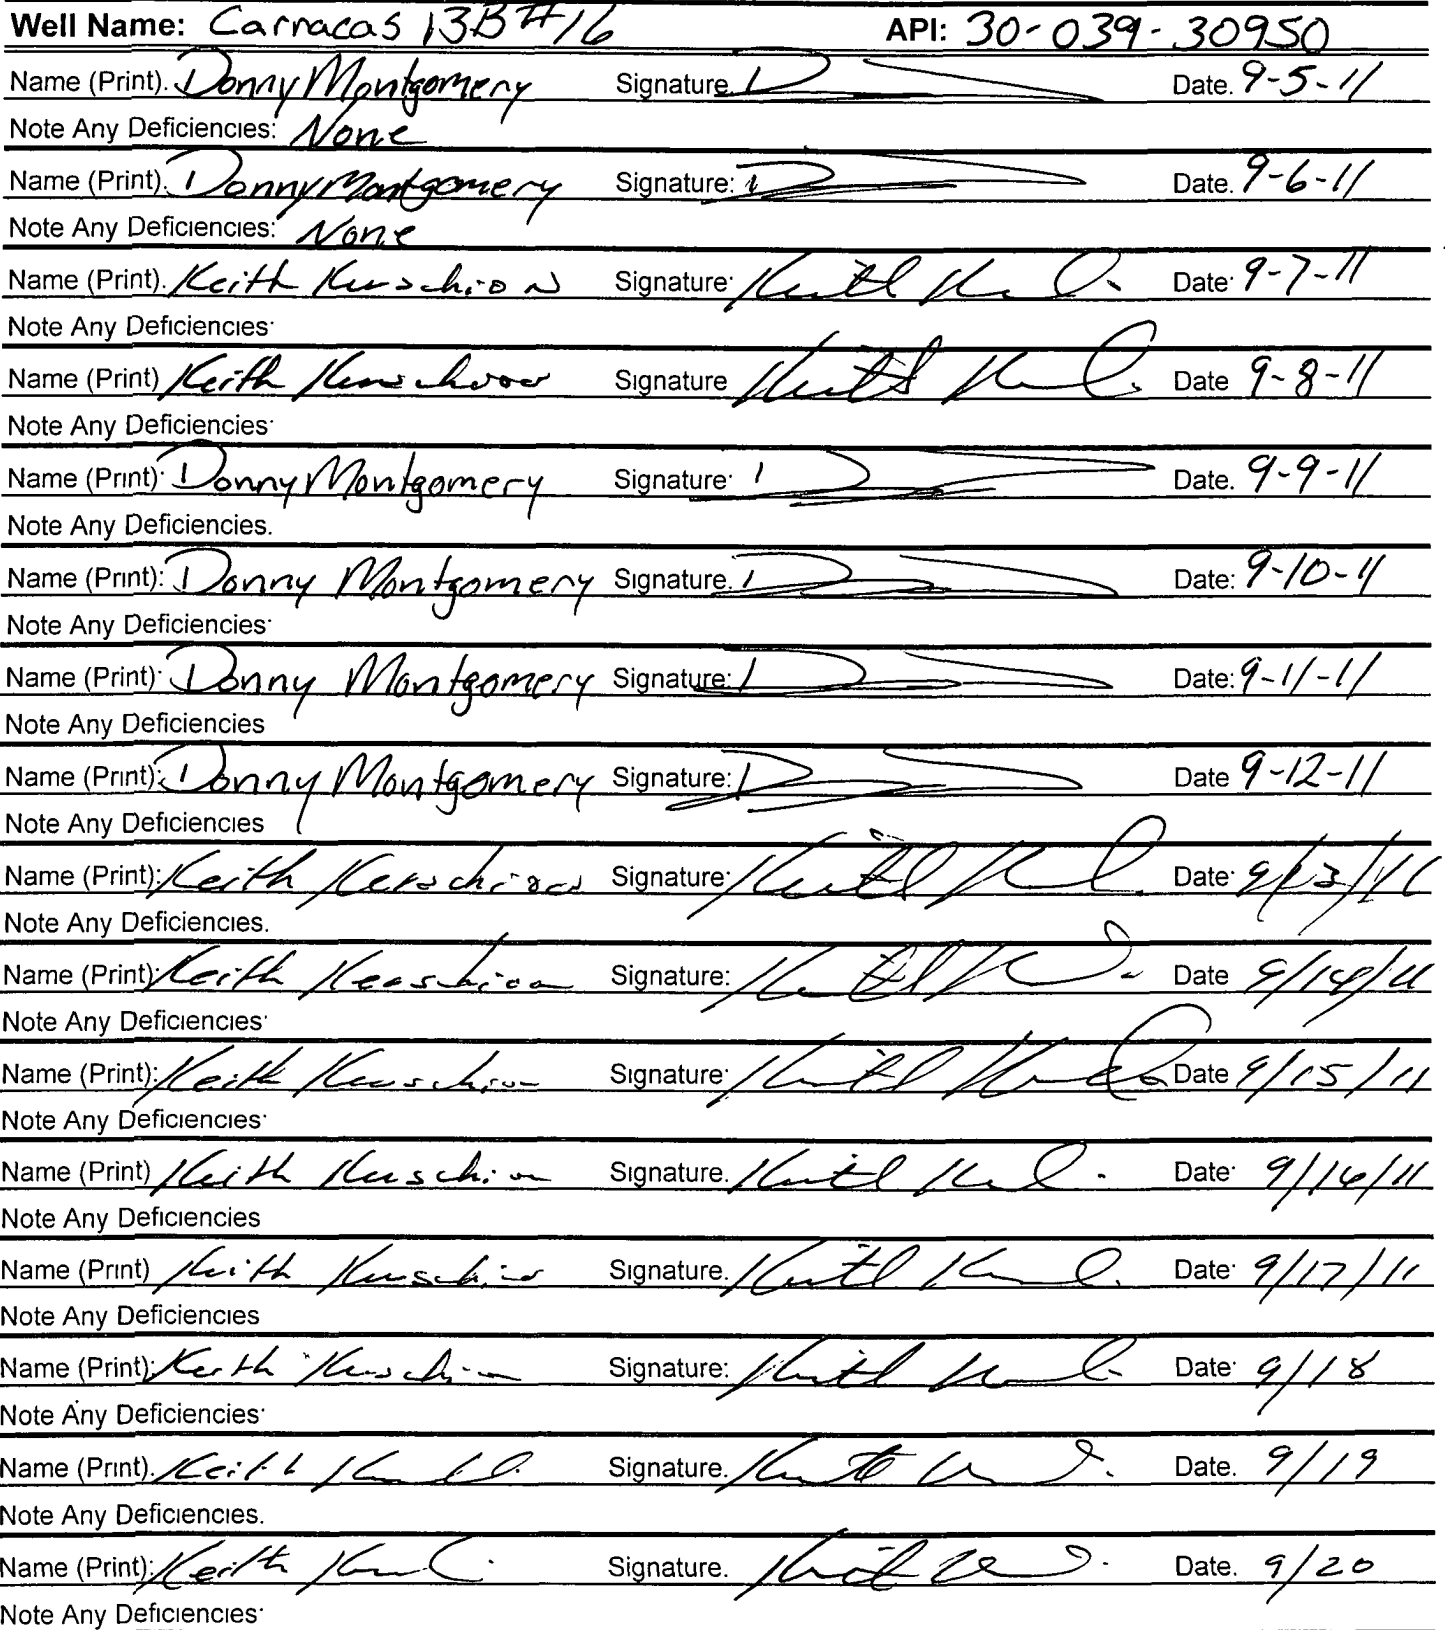 Well Name: Carracas 13B #16 API: 30-039-30950
Name (Print). Donny Montgomery Signature. Date. 9-5-11
Note Any Deficiencies: None
Name (Print). Donny Montgomery Signature: Date. 9-6-11
Note Any Deficiencies: None
Name (Print). Keith Signature Date 9-7-11
Note Any Deficiencies
Name (Print) Keith Signature Date 9-8-11
Note Any Deficiencies
Name (Print) Donny Montgomery Signature Date. 9-9-11
Note Any Deficiencies.
Name (Print): Donny Montgomery Signature. Date: 9-10-11
Note Any Deficiencies
Name (Print) Donny Montgomery Signature: Date: 9-11-11
Note Any Deficiencies
Name (Print): Donny Montgomery Signature: Date 9-12-11
Note Any Deficiencies
Name (Print): Keith Signature Date 9/13/11
Note Any Deficiencies.
Name (Print): Keith Signature: Date 9/14/11
Note Any Deficiencies
Name (Print): Keith Signature Date 9/15/11
Note Any Deficiencies
Name (Print) Keith Signature. Date 9/16/11
Note Any Deficiencies
Name (Print) Keith Signature. Date 9/17/11
Note Any Deficiencies
Name (Print): Keith Signature: Date 9/18
Note Any Deficiencies
Name (Print). Keith Signature. Date. 9/19
Note Any Deficiencies.
Name (Print): Keith Signature. Date. 9/20
Note Any Deficiencies